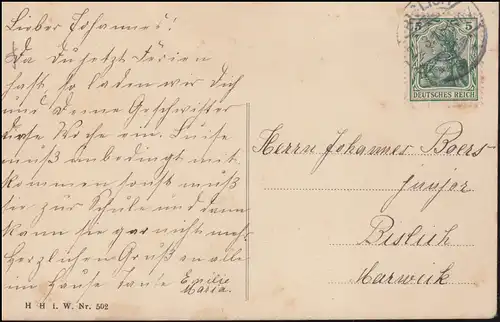 Lieber Johannes!
Da Du jetzt Ferien
hast so laden wir Dich
und Deine Geschwister
diese Woche ein. Luise
muß unbedingt mit-
kommen sonst muß
sie zur Schule und dann
kann sie gar nicht mehr
Herzlichen Gruß an alle
im Hause Tante Emilie
Maria.
H H i. W. Nr. 502
5
DEUTSCHES REICH
Herrn Johannes Boers
junior
Bislich
Marwick